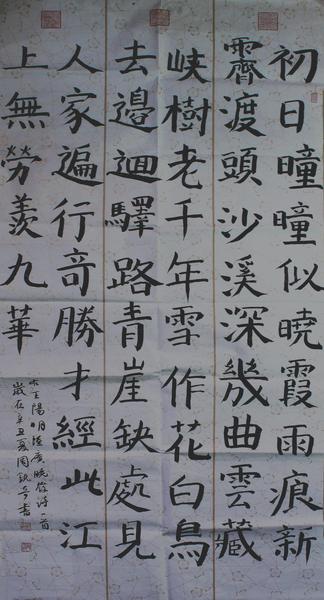 初日曈曈似曉霞雨痕新
霽渡頭沙溪深幾曲雲藏
峽樹老千年雪作花白鳥
去邊迴驛路青崖缺處見
人家遍行竒勝才經此江
上無勞羨九華
王陽明陸廣曉發詩一首
歲在辛丑夏周書